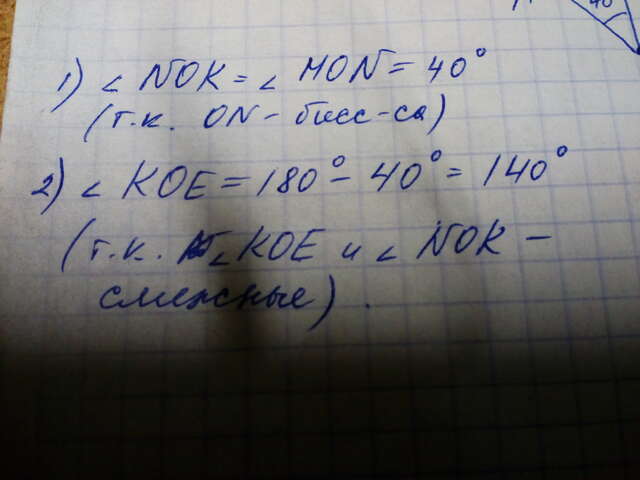 1) ∠ NOK = ∠ MON = 40°
(т.к. ON - бисс-са)
2) ∠ KOE = 180° - 40° = 140°
(т.к. ∠ KOE и ∠ NOK -
смежные).
40°